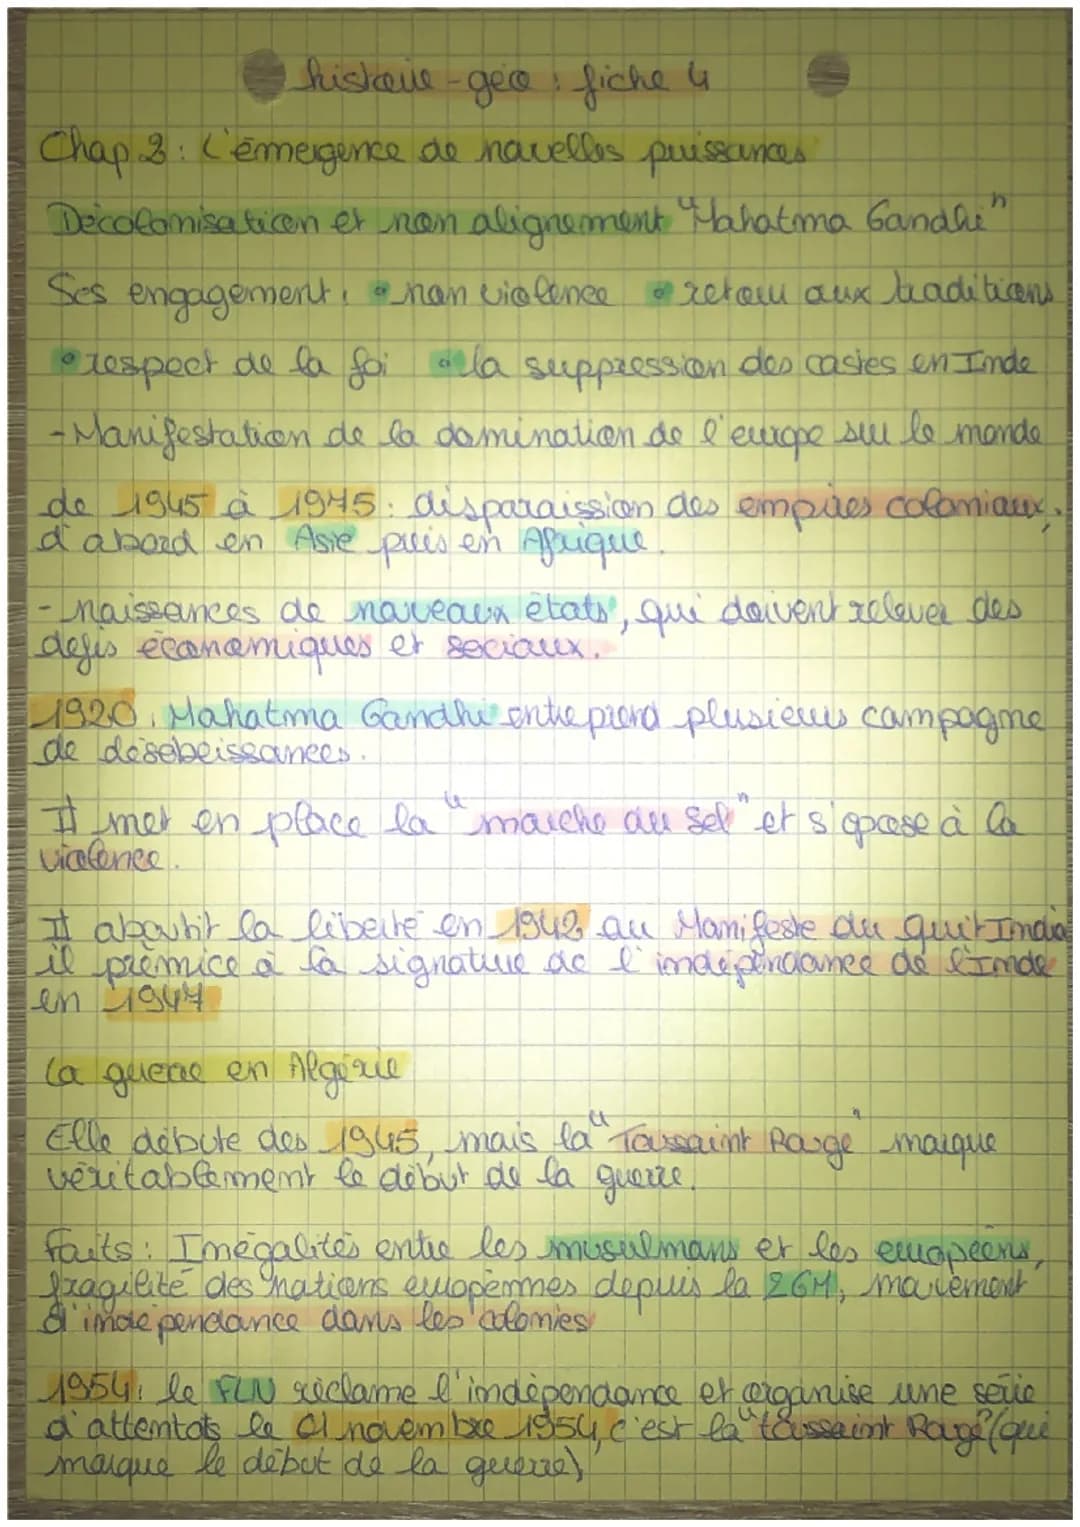 histoire-géo : fiche 4
Chap 3 : L'émergence de nouvelles puissances
Décolonisation et non alignement "Mahatma Gandhi"
Ses engagement : • non violence • retour aux traditions
• respect de la foi • la suppression des castes en Inde
- Manifestation de la domination de l'europe sur le monde
de 1945 à 1975 : disparaission des empires coloniaux,
d'abord en Asie puis en Afrique.
- naissances de nouveaux états, qui doivent relever des
défis économiques et sociaux.
1920 : Mahatma Gandhi entreprend plusieurs campagne
de désobeissances.
Il met en place la "marche du sel" et s'opose à la
violence.
Il aboutit la liberté en 1942 au Manifeste du quit India
il prémice à la signature de l'indépendance de l'Inde
en 1947.
La guerre en Algérie
Elle débute des 1945, mais la "Toussaint Rouge" marque
véritablement le début de la guerre.
Faits : Inégalités entre les musulmans et les européens,
fragilité des nations européennes depuis la 2GM, mouvement
d'indépendance dans les colonies
1954 : le FLN réclame l'indépendance et organise une série
d'attentats le 01 novembre 1954, c'est la "toussaint Rouge" (qui
marque le début de la guerre)